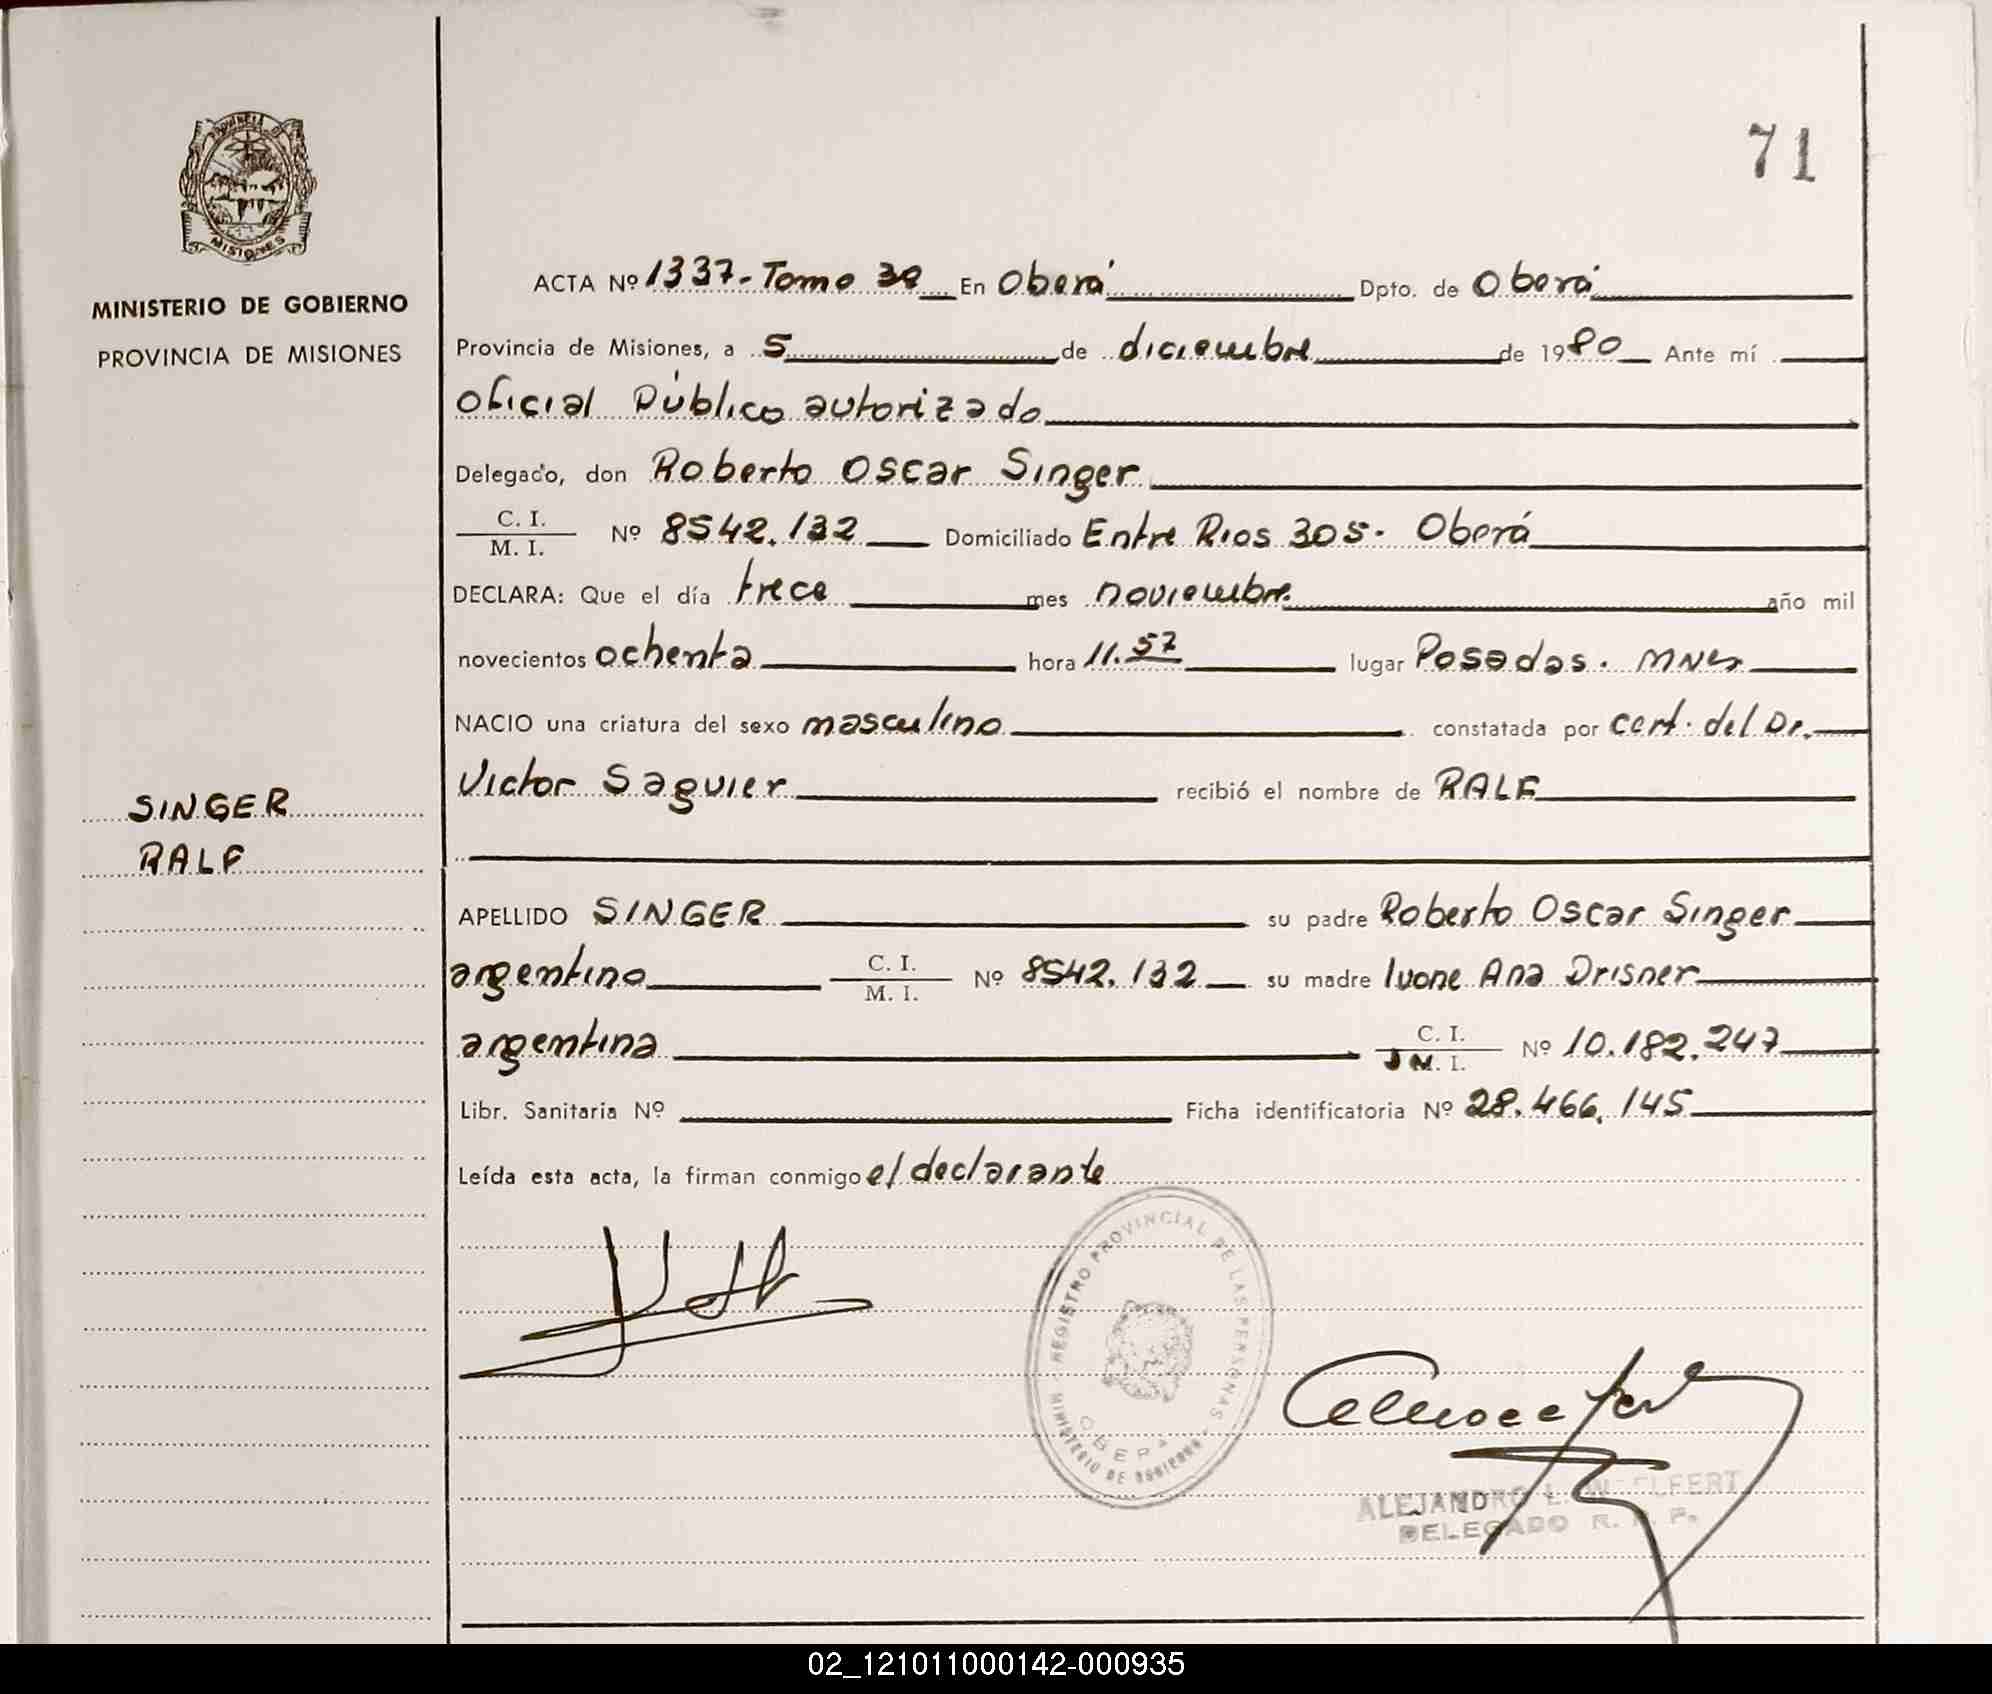 71
PROVINCIA DE
MISIONES
MINISTERIO DE GOBIERNO
PROVINCIA DE MISIONES
ACTA Nº 1337-Tomo 3º En Oberá Dpto. de Oberá
Provincia de Misiones, a 5 de diciembre de 1980 Ante mí
Oficial Público autorizado
Delegado, don Roberto Oscar Singer
C. I.
M. I. Nº 8542.132 Domiciliado Entre Rios 305- Oberá
DECLARA: Que el día trece mes noviembre año mil
novecientos ochenta hora 11.57 lugar Posadas. Mnes
NACIO una criatura del sexo masculino constatada por cert. del Dr.
Victor Saguier recibió el nombre de RALF
SINGER
RALF
APELLIDO SINGER su padre Roberto Oscar Singer
argentino C. I.
M. I. Nº 8542.132 su madre Ivone Ana Drisner
argentina C. I.
M. I. Nº 10.182.247
Libr. Sanitaria Nº Ficha identificatoria Nº 28.466.145
Leída esta acta, la firman conmigo el declarante
REGISTRO PROVINCIAL DE LAS PERSONAS
MINISTERIO DE GOBIERNO
OBERA
ALEJANDRO L.
DELEGADO R. P.
02_121011000142-000935